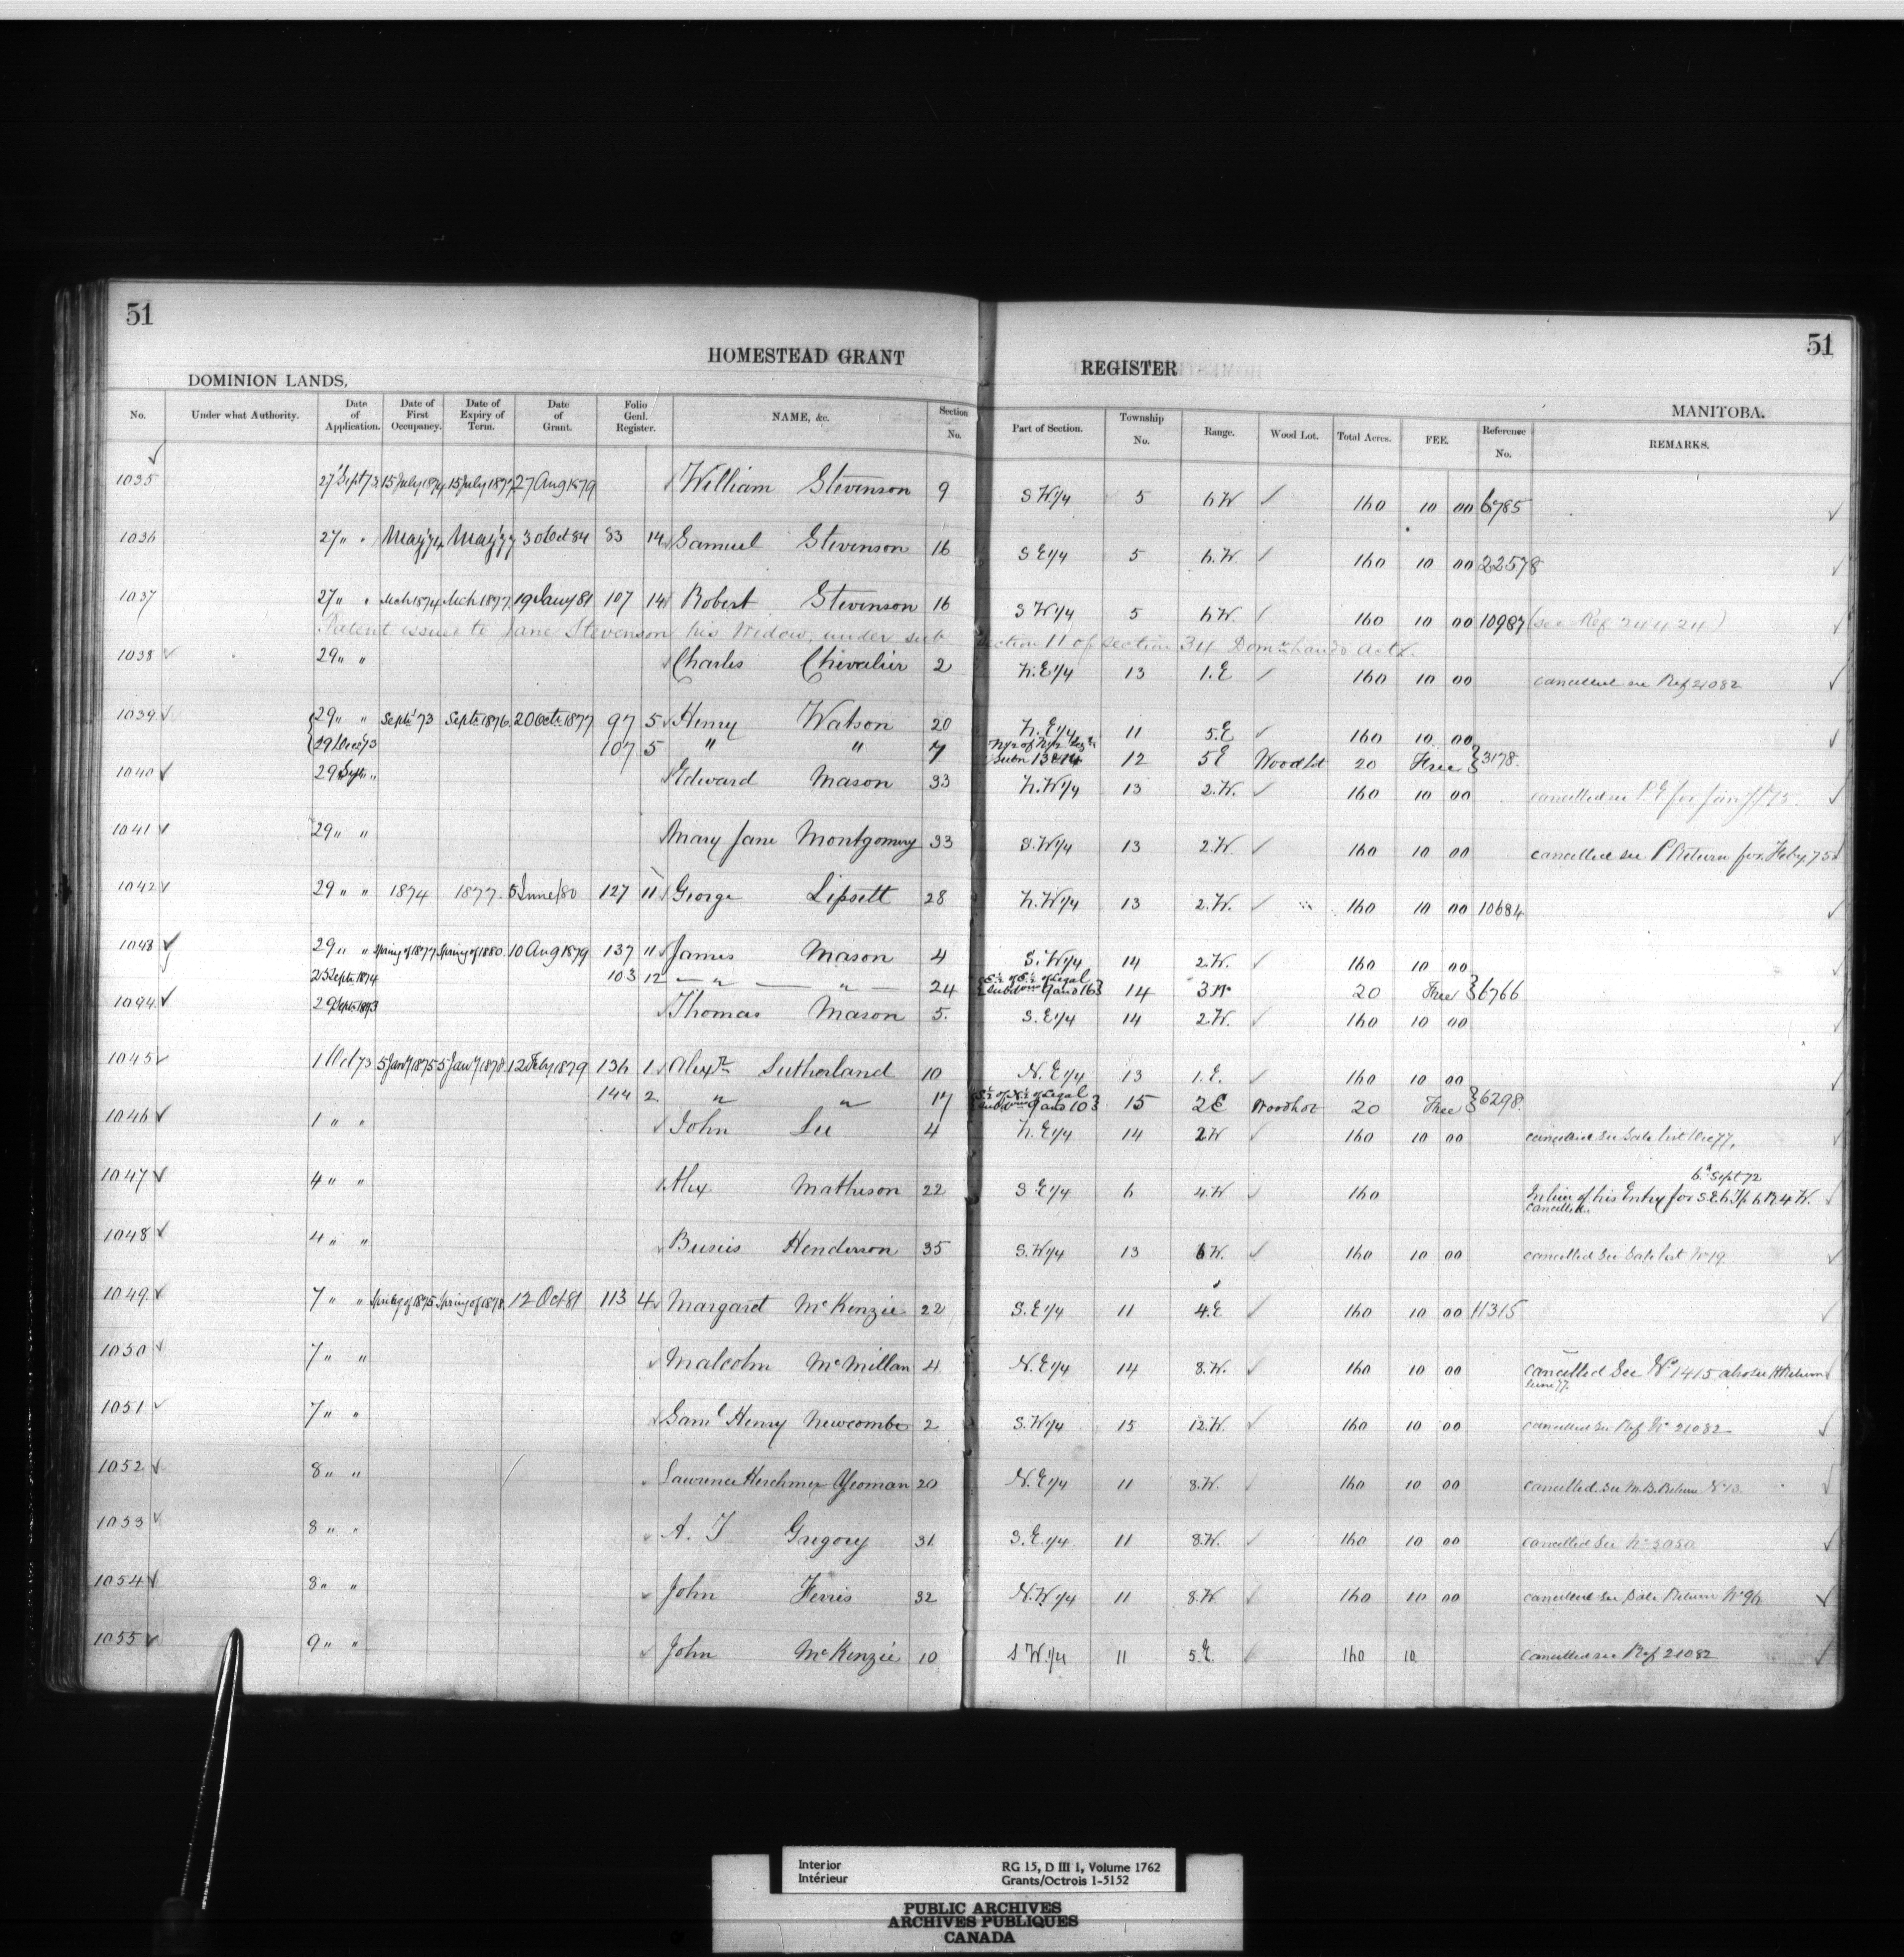 51
51
HOMESTEAD GRANT REGISTER
DOMINION LANDS. MANITOBA.
No. Under what Authority. Date of Application. Date of First Occupancy. Date of Expiry of Term. Date of Grant. Folio Genl. Register. NAME, &c. Section No. Part of Section. Township No. Range. Wood Lot. Total Acres. FEE. Reference No. REMARKS.
1035 27 Sept 73 15 July 1874 15 July 1877 27 Aug 1879 William Stevenson 9 S W 1/4 5 6 W 160 10 00 6785
1036 27 " " May '74 May '77 30 Oct 84 83 14 Samuel Stevenson 16 S E 1/4 5 6.W. 160 10 00 22578
1037 27 " " Mch 1874 Mch 1877 19 Jany 81 107 14 Robert Stevenson 16 S W 1/4 5 6 W. 160 10 00 10987 (see Ref 24424)
Patent issued to Jane Stevenson his Widow, under sub section 11 of section 34 Domn Lands Act.
1038 29 " " Charles Chevalier 2 N.E 1/4 13 1.E 160 10 00 cancelled see Ref 21082
1039 29 " " Septr 73 Septr 1876 20 Octr 1877 97 5 Henry Watson 20 N.E 1/4 11 5.E 160 10 00
29 Decr 73 107 5 " " 7 N 1/2 of N 1/2 Leg Subn 13 & 14 12 5 E Wood Lot 20 Free 3178.
1040 29 Sept " Edward Mason 33 N.W 1/4 13 2.W. 160 10 00 cancelled see
1041 29 " " Mary Jane Montgomery 33 S.W 1/4 13 2.W. 160 10 00 cancelled see P Return for Feby 75
1042 29 " " 1874 1877. 5 June /80 127 11 George Lipsett 28 N.W 1/4 13 2.W. 160 10 00 10684
1043 29 " " Spring of 1877 Spring of 1880 10 Aug 1879 137 11 James Mason 4 S.W 1/4 14 2.W. 160 10 00
25 Septr 1874 103 12 — " — " — 24 S 1/2 of S 1/2 of Legal Subdvons 9 and 16 14 3 W 20 Free 6766
1094. 29 Septr 1873 Thomas Mason 5. S.E 1/4 14 2.W. 160 10 00
1045 1 Oct 73 5 Jany 1875 5 Jany 1878 12 Feby 1879 136 1 Alexr Sutherland 10 N.E 1/4 13 1.E. 160 10 00
144 2 " " 17 S 1/2 of N 1/2 of Legal Subdvons 9 and 10 15 2 E Woodlot 20 Free 6298.
1046 1 " " John Lee 4 N.E 1/4 14 2 W 160 10 00 cancelled see Sale list Dec 77.
1047 4 " " Alex Matheson 22 S E 1/4 6 4.W 160 6th Sept 72
In lieu of his Entry for S.E. 6 Tp 6 R. 4 W. cancelled.
1048 4 " " Henderson 35 S.W 1/4 13 6 W. 160 10 00 cancelled see Sale list No 19.
1049 7 " " Spring of 1875 Spring of 1878 12 Oct 81 113 4 Margaret McKenzie 22 S.E 1/4 11 4.E 160 10 00 11315
1050 7 " " Malcolm McMillan 4 N.E 1/4 14 8.W. 160 10 00 cancelled See No 1415 also see H Return June 77.
1051 7 " " Saml Henry Newcombe 2 S.W 1/4 15 12.W. 160 10 00 cancelled see Ref No 21082
1052 8 " " Lawrence Herchmer Yeoman 20 N.E 1/4 11 8.W. 160 10 00 cancelled see M.B. Return No 13
1053 8 " " A. T Gregory 31. S.E. 1/4 11 8.W. 160 10 00 cancelled see No 3050
1054 8 " " John Ferris 32 N.W 1/4 11 8.W. 160 10 00 cancelled see Sale Return No 96
1055 9 " " John McKenzie 10 S W. 1/4 11 5.E. 160 10. cancelled see Ref 21082
Interior RG 15, D III 1, Volume 1762
Intérieur Grants/Octrois 1-5152
PUBLIC ARCHIVES
ARCHIVES PUBLIQUES
CANADA